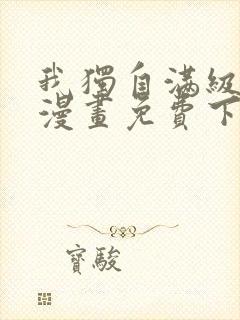 我獨自滿級
漫畫免費下
寶駿